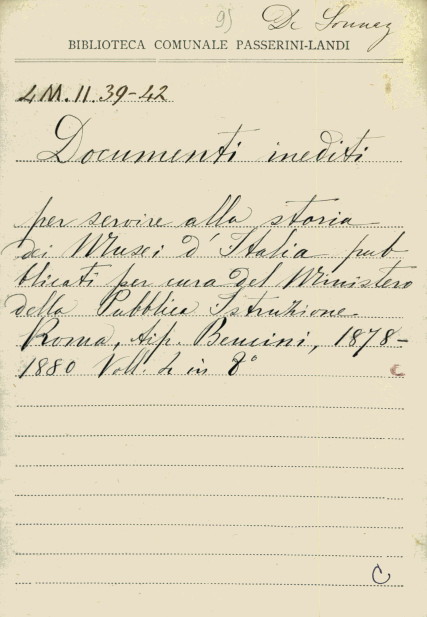 95 De
BIBLIOTECA COMUNALE PASSERINI-LANDI
4 M. II. 39-42
Documenti inediti
per servire alla storia
dei Musei d'Italia pub
blicati per cura del Ministero
della Pubblica Istruzione
Roma, tip. Bencini, 1878-
1880 Voll. 4 in 8°
C
C